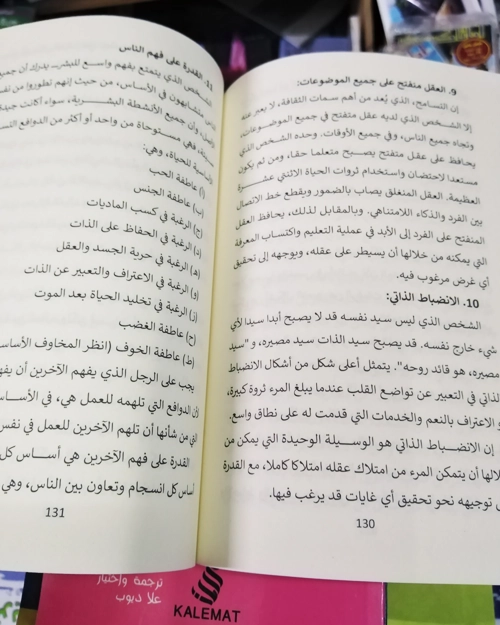 9. العقل منفتح على جميع الموضوعات:
إن التسامح، الذي يُعد من أهم سمات الثقافة، لا يعبر عنه
إلا الشخص الذي لديه عقل منفتح في جميع الموضوعات،
وتجاه جميع الناس، وفي جميع الأوقات. وحده الشخص الذي
يحافظ على عقل منفتح يصبح متعلما حقا، ومن ثم يكون
مستعدا لاحتضان واستخدام ثروات الحياة الاثنتي عشرة
العظيمة. العقل المنغلق يصاب بالضمور ويقطع خط الاتصال
بين الفرد والذكاء اللامتناهي. وبالمقابل لذلك، يحافظ العقل
المنفتح على الفرد إلى الأبد في عملية التعليم واكتساب المعرفة
التي يمكنه من خلالها أن يسيطر على عقله، ويوجهه إلى تحقيق
أي غرض مرغوب فيه.
10. الانضباط الذاتي:
الشخص الذي ليس سيد نفسه قد لا يصبح أبدا سيدا لأي
شيء خارج نفسه. قد يصبح سيد الذات سيد مصيره، و "سيد
مصيره، هو قائد روحه". يتمثل أعلى شكل من أشكال الانضباط
الذاتي في التعبير عن تواضع القلب عندما يبلغ المرء ثروة كبيرة،
و الاعتراف بالنعم والخدمات التي قدمت له على نطاق واسع.
إن الانضباط الذاتي هو الوسيلة الوحيدة التي يمكن من
لالها أن يتمكن المرء من امتلاك عقله امتلاكا كاملا، مع القدرة
توجيهه نحو تحقيق أي غايات قد يرغب فيها.
130
11. القدرة على فهم الناس
الشخص الذي يتمتع بفهم واسع للبشر يدرك أن جميع
الناس متشابهون في الأساس، من حيث إنهم تطوروا من نفس
الأصل، وأن جميع الأنشطة البشرية، سواء أكانت جيدة
سيئة، فهي مستوحاة من واحد أو أكثر من الدوافع التسعة
للحياة، وهي:
(أ) عاطفة الحب
(ب) عاطفة الجنس
(ج) الرغبة في كسب الماديات
(د) الرغبة في الحفاظ على الذات
(هـ) الرغبة في حرية الجسد والعقل
(و) الرغبة في الاعتراف والتعبير عن الذات
(ز) الرغبة في تخليد الحياة بعد الموت
(ح) عاطفة الغضب
(ط) عاطفة الخوف (انظر المخاوف الأساس
يجب على الرجل الذي يفهم الآخرين أن يفه
لأن الدوافع التي تلهمه للعمل هي، في الأساس
التي من شأنها أن تلهم الآخرين للعمل في نفس
القدرة على فهم الآخرين هي أساس كل
أساس كل انسجام وتعاون بين الناس، وهي
131
ترجمة وإختيار
علا ديوب
KALEMAT